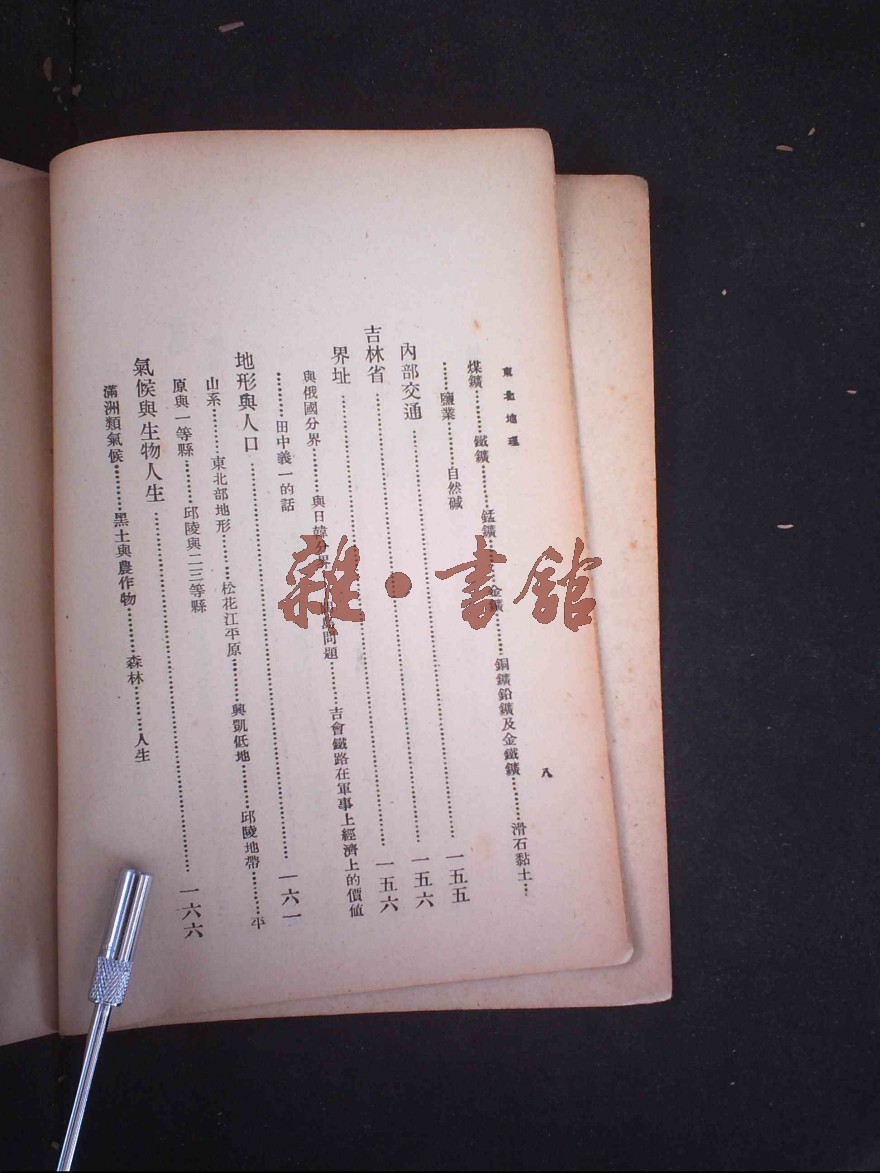 東北地理
八
煤鑛………鐵鑛………錳鑛………金鑛………銅鑛鉛鑛及金鐵鑛………滑石黏土…
……鹽業………自然碱
一五五
內部交通………一五六
吉林省………一五六
界址
與俄國分界………與日韓分界………問題………吉會鐵路在軍事上經濟上的價値
………田中義一的話
地形與人口………一六一
山系………東北部地形………松花江平原………興凱低地………邱陵地帶………平
原與一等縣………邱陵與二三等縣
氣候與生物人生………一六六
滿洲類氣候………黑土與農作物………森林………人生
雜·書館